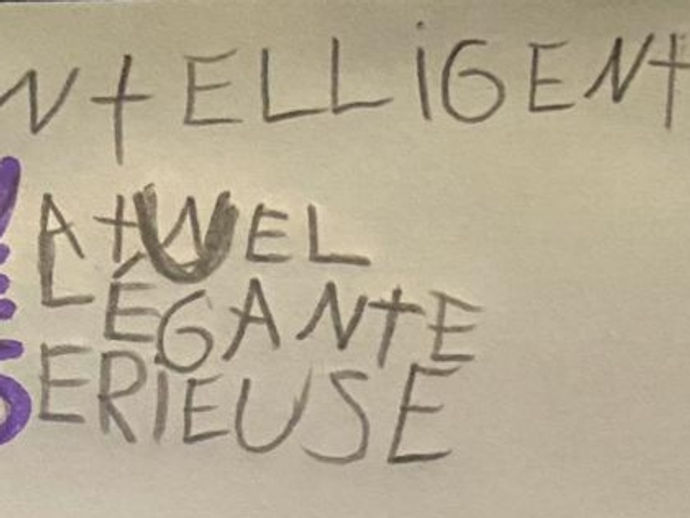 NtELLiGENt
AtUEL
LÉGANtE
SERiEUSE